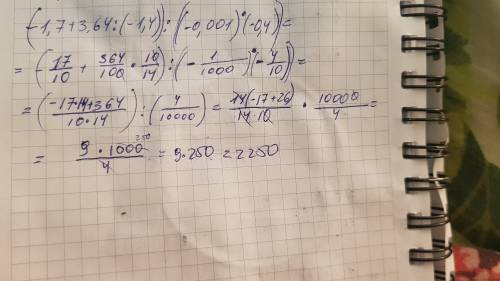 (-1,7+3,64:(-1,4)):(-0,001)·(-0,4)=
=(-17/10+364/100·10/14):(-1/1000)·(-4/10)=
=(-17·14+364/10·14):(4/10000)=14(-17+26)/14·10·10000/4=
=9·1000/4 250=9·250=2250